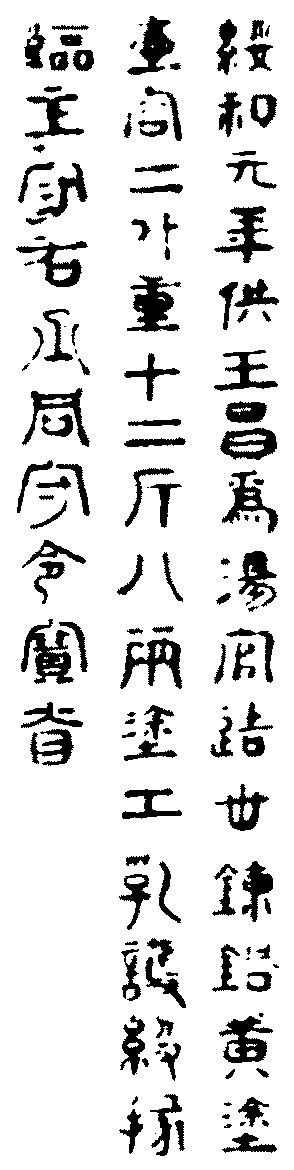 綏和元年供王昌爲湯官造卅鍊銅黃塗
壺容二斗重十二斤八兩塗工乳護級掾
臨主守右丞同守令寶省